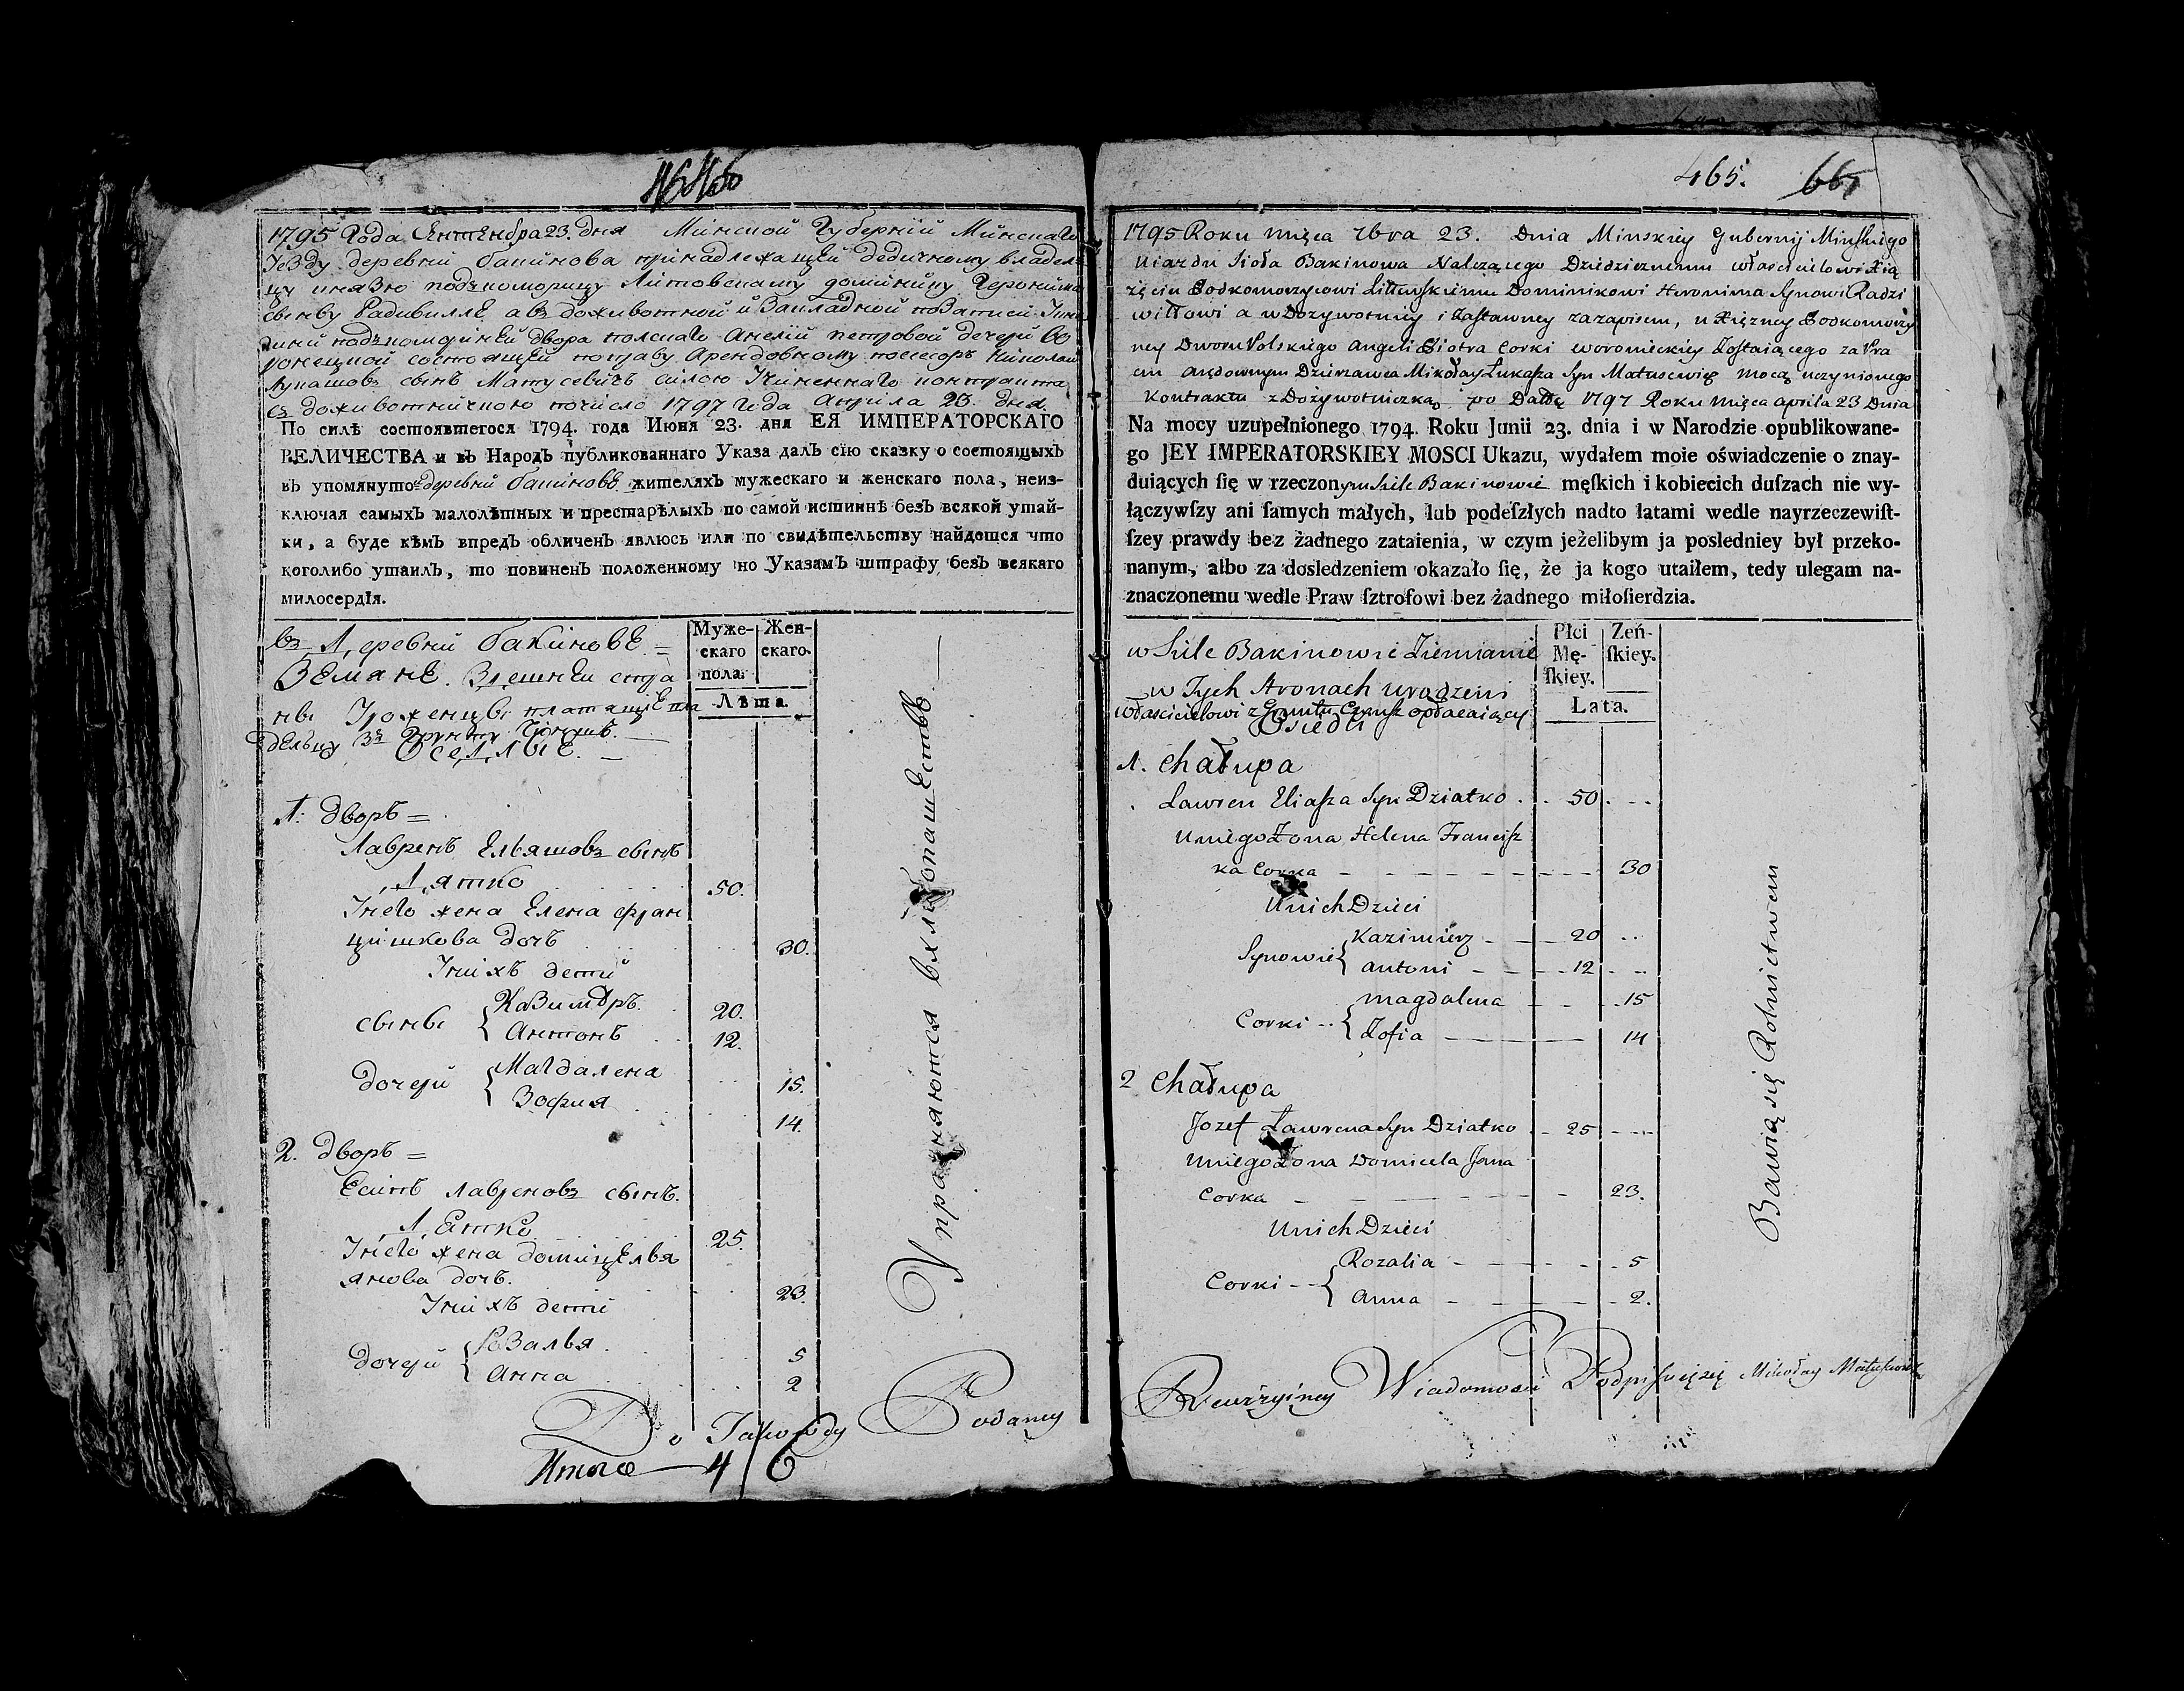 465. 665
1795 Года Сентебра 23. дня Минской Губернии Минскаго
Уезду деревни бакинова принадлежащей дедичному владел
цу князю подкоморицу Литовскому доминику Героними
сынву Радивилле, а въ доживотной и Закладной по Записи
двора полскаго Анелии петровой дочери Во
ронецкой состоящей по праву Арендовному посесоръ Николай
Лукашовъ сынъ Матусевичъ силою Учиненнаго контракта
съ доживотничкою по число 1797 Года Априла 23. дня.
По силѣ состоявшегося 1794. года Июня 23. дня ЕЯ ИМПЕРАТОРСКАГО
ВЕЛИЧЕСТВА и въ Народъ публикованнаго Указа далъ сїю сказку о состоящыхъ
въ упомянуто деревни бакиновѣ жителяхъ мужескаго и женскаго пола, неиз-
ключая самыхъ малолѣтныхъ и престарѣлыхъ по самой истиннѣ безъ всякой утай-
ки, а буде кѣмъ впредъ обличенъ явлюсь или по свидѣтельству найдется что
коголибо утаилъ, то повиненъ положенному по Указамъ штрафу безъ всякаго
милосердїя.
въ Деревни бакиновѣ =
Земяне. Здешнеи сто
нвы Уроженцы платящие
дельцу Зъ Грунту Чыншъ.
Оседлые. —
Муже- скаго пола.
Жен- скаго.
Лѣта.
1. дворъ =
Лавренъ Ельяшовъ сынъ
Дятко 50.
У него жена Елена фран
цишкова дочь 30.
У нихъ дети
сыны { Казимѣръ. 20.
Антонъ 12.
дочери { Магдалена 15.
Зофия 14.
2. дворъ =
Есипъ лавреновъ сынъ.
Дятко 25.
У него жена домицелья
янова дочь. 23.
У нихъ дети
дочери { Розалья 5
Анна 2
Упражняются в хлѣбопашествѣ —
Do Takowey Podaney
Итого — 4 / 6
1795 Roku Mięca 7bra 23. Dnia Minskiey Gubernij Minskiego
Uiazdu Sioła Bakinowa Nalezącego Dziedzicznemu włascicielowi Xią
zęciu Podkomorzycowi Littewskiemu Dominikowi Heronima Synowi Radzi
wiłłowi a w Dozywotniey i Zastawney za zapisem, u Xięzney Podkomorzy
ney Dworu Polskiego Angeli Piotra Corki Woronieckiey Zostaiącego za Pra
em Arędownym Dzierzawca Mikołay Łukasza Syn Matusewicz Mocą uczynionego
Kontraktu z Dożywotniczką po Datę 1797 Roku Mięca Aprila 23 Dnia
Na mocy uzupełnionego 1794. Roku Junii 23. dnia i w Narodzie opublikowane-
go JEY IMPERATORSKIEY MOSCI Ukazu, wydałem moie oświadczenie o znay-
duiących ſię w rzeczonym Siele Bakinowie męſkich i kobiecich duſzach nie wy-
łączywſzy ani ſamych małych, lub podeſzłych nadto latami wedle nayrzeczewiſt-
ſzey prawdy bez żadnego zataienia, w czym jeżelibym ja posledniey był przeko-
nanym, albo za dosledzeniem okazało ſię, że ja kogo utaiłem, tedy ulegam na-
znaczonemu wedle Praw ſztrofowi bez żadnego miłoſierdzia.
w Siele Bakinowie Ziemianie
w Tych Stronach Urodzeni
właścicielowi z Gruntu Czynsz opłacaiący
Osiedli
Płci Mę- ſkiey.
Zeń- ſkiey.
Lata.
1. Chałupa
Lawren Eliasza Syn Dziatko 50
U niego Zona Helena Francisz
ka Corka 30
U nich Dzieci
Synowie { Kazimierz 20
Antoni 12
Corki { Magdalena 15
Zofia 14
2 Chałupa
Jozef Ławrena Syn Dziatko 25
U niego Zona Domicela Jana
Corka 23.
U nich Dzieci
Corki { Rozalia 5
Anna 2.
Bawią się Rolnictwem
Rewizyiney Wiadomosci Podpisuię się Mikołay Matusewicz